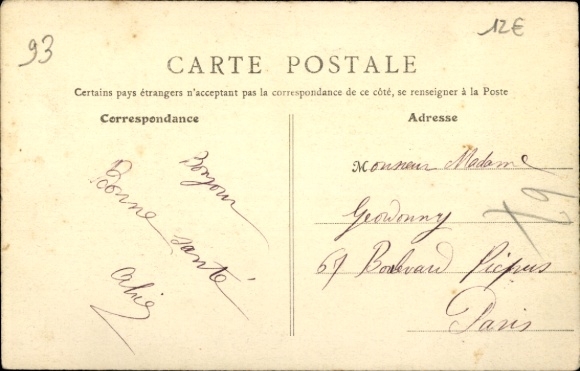 93
12€
CARTE POSTALE
Certains pays étrangers n'acceptant pas la correspondance de ce côté, se renseigner à la Poste
Correspondance
Bonjour
Bonne santé
Adresse
Monsieur Madame
67 Boulevard Picpus
Paris